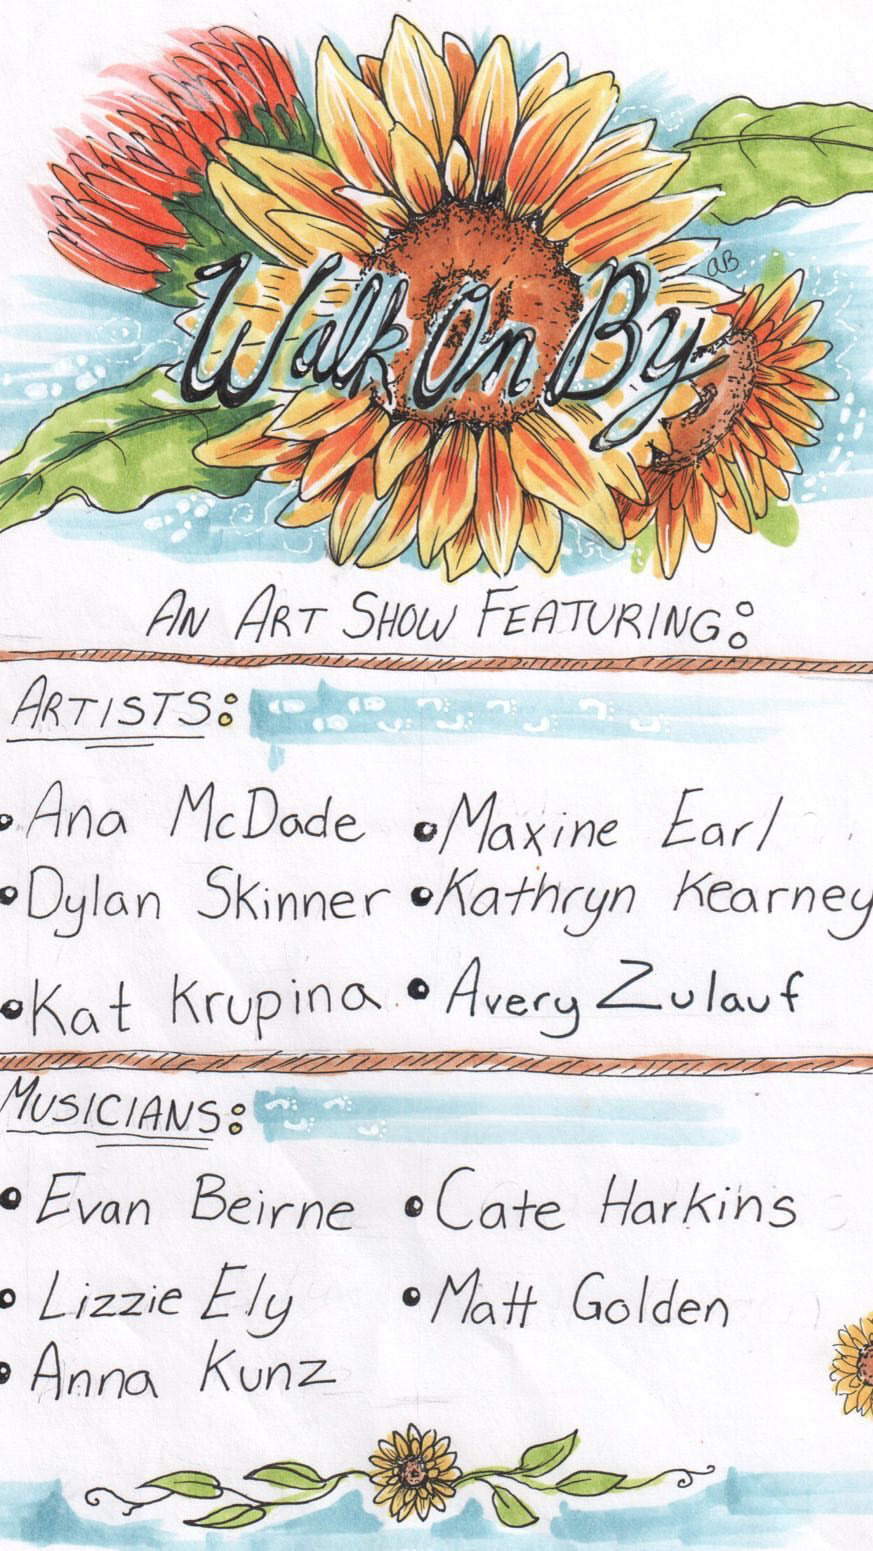 Walk On By
AB
An Art Show Featuring:
Artists:
• Ana McDade
• Maxine Earl
• Dylan Skinner
• Kathryn Kearney
• Kat Krupina
• Avery Zulauf
Musicians:
• Evan Beirne
• Cate Harkins
• Lizzie Ely
• Matt Golden
• Anna Kunz